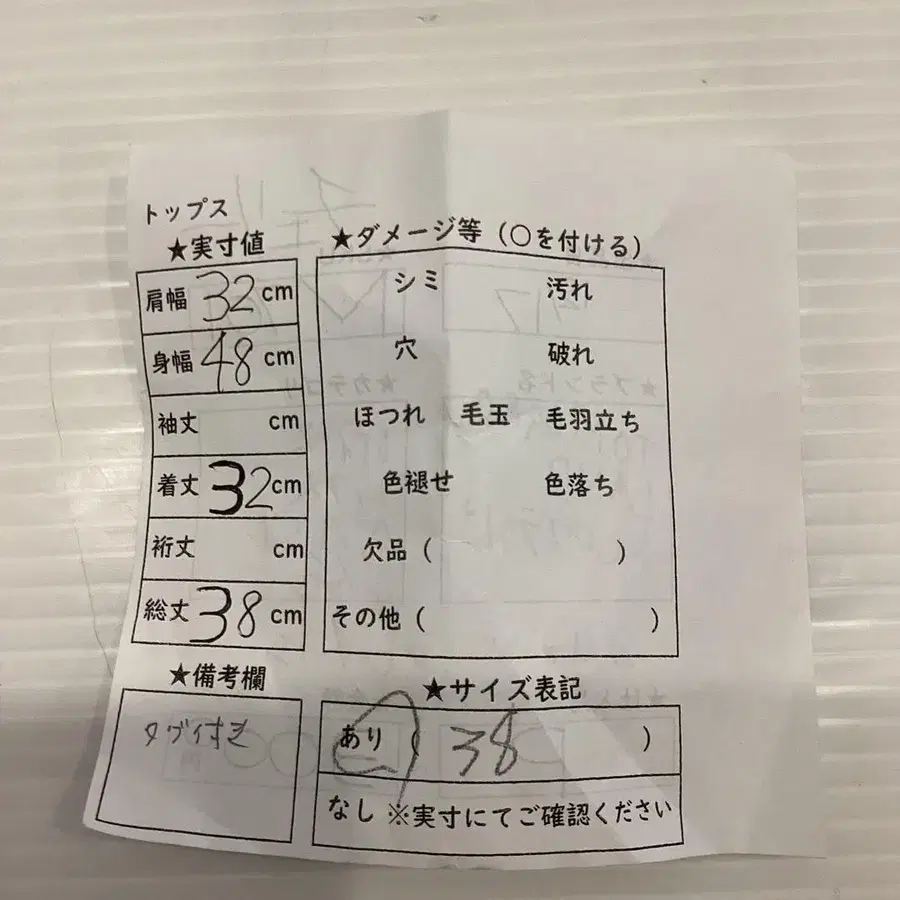 トップス
★実寸値
肩幅 32 cm
身幅 48 cm
袖丈 cm
着丈 32 cm
裄丈 cm
総丈 38 cm
★備考欄
タグ付き
★ダメージ等（○を付ける）
シミ 汚れ
穴 破れ
ほつれ 毛玉 毛羽立ち
色褪せ 色落ち
欠品（ ）
その他（ ）
★サイズ表記
あり（ 38 ）
なし ※実寸にてご確認ください